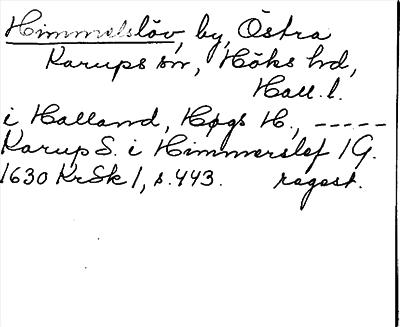 Himmelslöv, by, Östra
Karups sn, Höks hd,
Hall. l.
i Halland, Høgs H., -----
Karup S. i Himmerslef 1 G.
1630 KrSk 1, s. 443. regest.